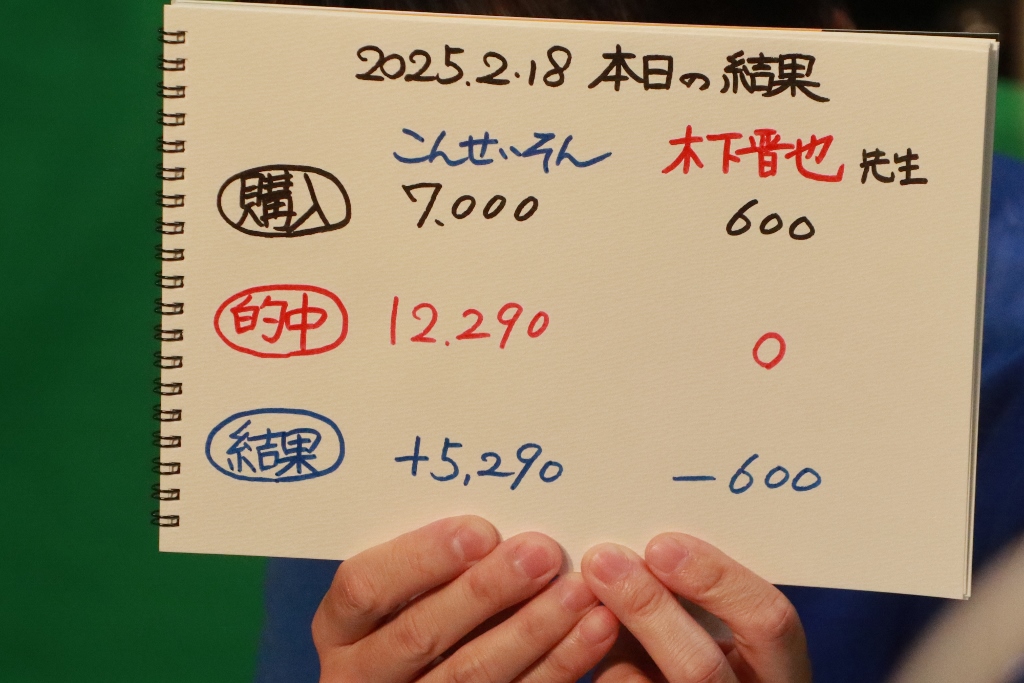 2025.2.18 本日の結果
こんせいそん 木下晋也先生
購入 7.000 600
的中 12.290 0
結果 +5,290 -600